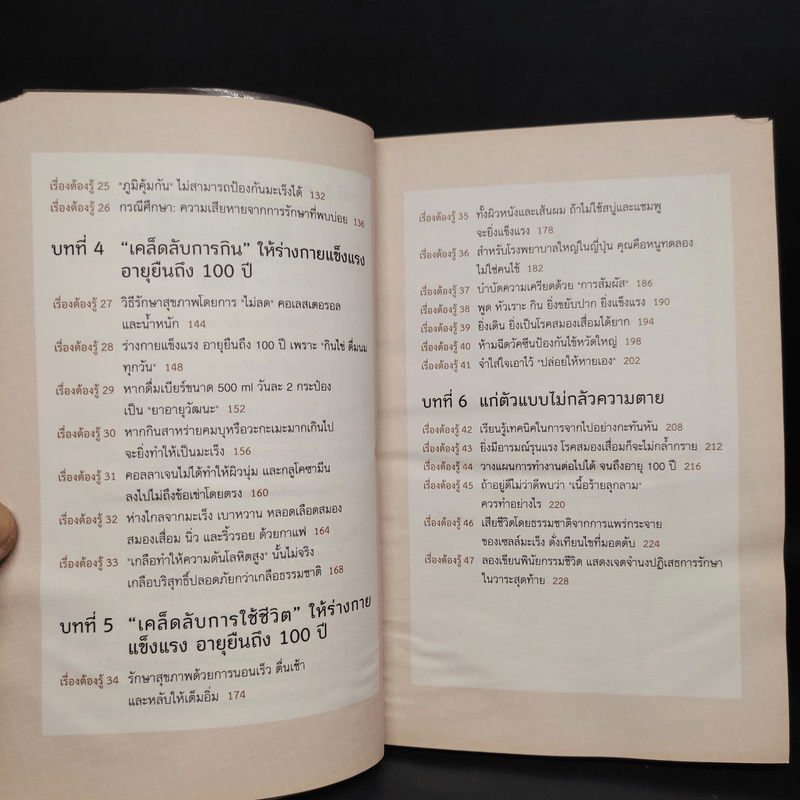 เรื่องต้องรู้ 25 "ภูมิคุ้มกัน" ไม่สามารถป้องกันมะเร็งได้ 132
เรื่องต้องรู้ 26 กรณีศึกษา: ความเสียหายจากการรักษาที่พบบ่อย 136
บทที่ 4 “เคล็ดลับการกิน” ให้ร่างกายแข็งแรง
อายุยืนถึง 100 ปี
เรื่องต้องรู้ 27 วิธีรักษาสุขภาพโดยการ "ไม่ลด" คอเลสเตอรอล
และน้ำหนัก 144
เรื่องต้องรู้ 28 ร่างกายแข็งแรง อายุยืนถึง 100 ปี เพราะ "กินไข่ ดื่มนม
ทุกวัน" 148
เรื่องต้องรู้ 29 หากดื่มเบียร์ขนาด 500 ml วันละ 2 กระป๋อง
เป็น "ยาอายุวัฒนะ" 152
เรื่องต้องรู้ 30 หากกินสาหร่ายคมบุหรือวะกะเมะมากเกินไป
จะยิ่งทำให้เป็นมะเร็ง 156
เรื่องต้องรู้ 31 คอลลาเจนไม่ได้ทำให้ผิวนุ่ม และกลูโคซามีน
ลงไปไม่ถึงข้อเข่าโดยตรง 160
เรื่องต้องรู้ 32 ห่างไกลจากมะเร็ง เบาหวาน หลอดเลือดสมอง
สมองเสื่อม นิ่ว และริ้วรอย ด้วยกาแฟ 164
เรื่องต้องรู้ 33 "เกลือทำให้ความดันโลหิตสูง" นั้นไม่จริง
เกลือบริสุทธิ์ปลอดภัยกว่าเกลือธรรมชาติ 168
บทที่ 5 “เคล็ดลับการใช้ชีวิต” ให้ร่างกาย
แข็งแรง อายุยืนถึง 100 ปี
เรื่องต้องรู้ 34 รักษาสุขภาพด้วยการนอนเร็ว ตื่นเช้า
และหลับให้เต็มอิ่ม 174
เรื่องต้องรู้ 35 ทั้งผิวหนังและเส้นผม ถ้าไม่ใช้สบู่และแชมพู
จะยิ่งแข็งแรง 178
เรื่องต้องรู้ 36 สำหรับโรงพยาบาลใหญ่ในญี่ปุ่น คุณคือหนูทดลอง
ไม่ใช่คนไข้ 182
เรื่องต้องรู้ 37 บำบัดความเครียดด้วย "การสัมผัส" 186
เรื่องต้องรู้ 38 พูด หัวเราะ กิน ยิ่งขยับปาก ยิ่งแข็งแรง 190
เรื่องต้องรู้ 39 ยิ่งเดิน ยิ่งเป็นโรคสมองเสื่อมได้ยาก 194
เรื่องต้องรู้ 40 ห้ามฉีดวัคซีนป้องกันไข้หวัดใหญ่ 198
เรื่องต้องรู้ 41 จำใส่ใจเอาไว้ "ปล่อยให้หายเอง" 202
บทที่ 6 แก่ตัวแบบไม่กลัวความตาย
เรื่องต้องรู้ 42 เรียนรู้เทคนิคในการจากไปอย่างกะทันหัน 208
เรื่องต้องรู้ 43 ยิ่งมีอารมณ์รุนแรง โรคสมองเสื่อมก็จะไม่กล้ำกราย 212
เรื่องต้องรู้ 44 วางแผนการทำงานต่อไปได้ จนถึงอายุ 100 ปี 216
เรื่องต้องรู้ 45 ถ้าอยู่ดีไม่ว่าดีพบว่า "เนื้อร้ายลุกลาม"
ควรทำอย่างไร 220
เรื่องต้องรู้ 46 เสียชีวิตโดยธรรมชาติจากการแพร่กระจาย
ของเซลล์มะเร็ง ดั่งเทียนไขที่มอดดับ 224
เรื่องต้องรู้ 47 ลองเขียนพินัยกรรมชีวิต แสดงเจตจำนงปฏิเสธการรักษา
ในวาระสุดท้าย 228